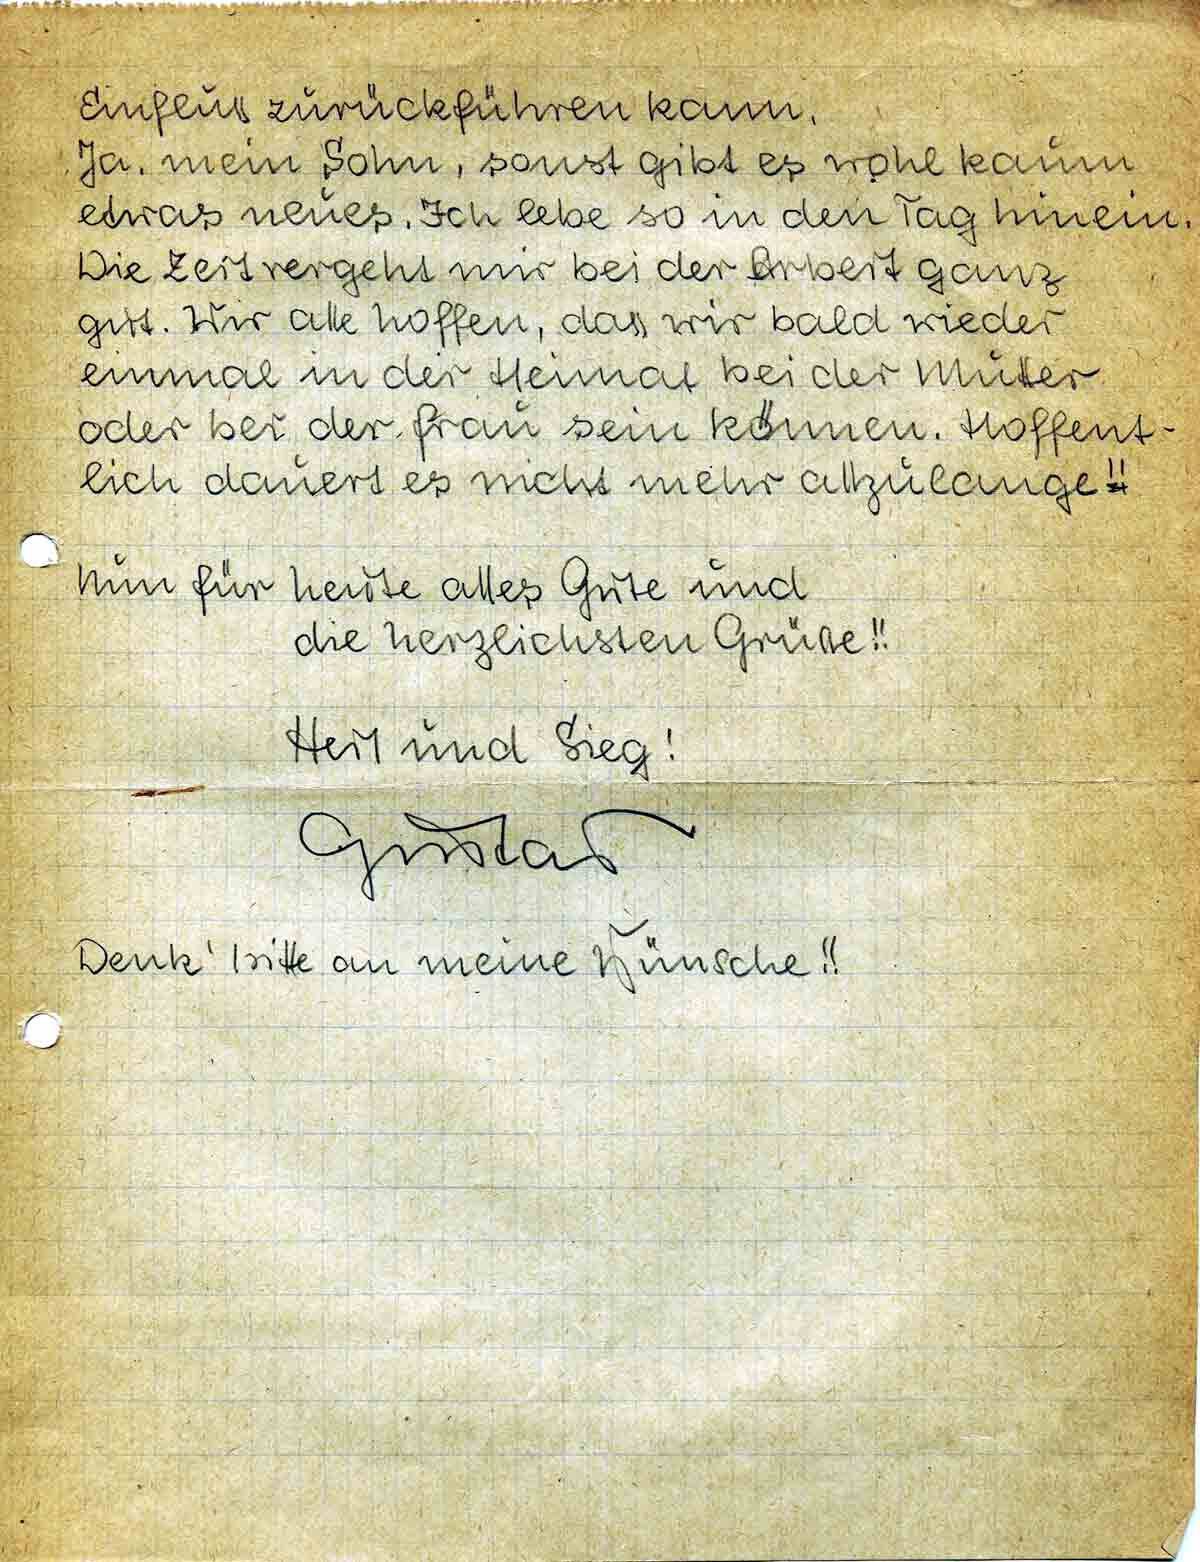 Einfluss zurückführen kann.
Ja, mein Sohn, sonst gibt es wohl kaum
etwas neues. Ich lebe so in den Tag hinein.
Die Zeit vergeht mir bei der Arbeit ganz
gut. Wir alle hoffen, dass wir bald wieder
einmal in der Heimat bei der Mutter
oder bei der Frau sein können. Hoffent-
lich dauert es nicht mehr allzulange!!
Nun für heute alles Gute und
die herzlichsten Grüsse!!
Heil und Sieg!
Gustav
Denk' bitte an meine Wünsche!!